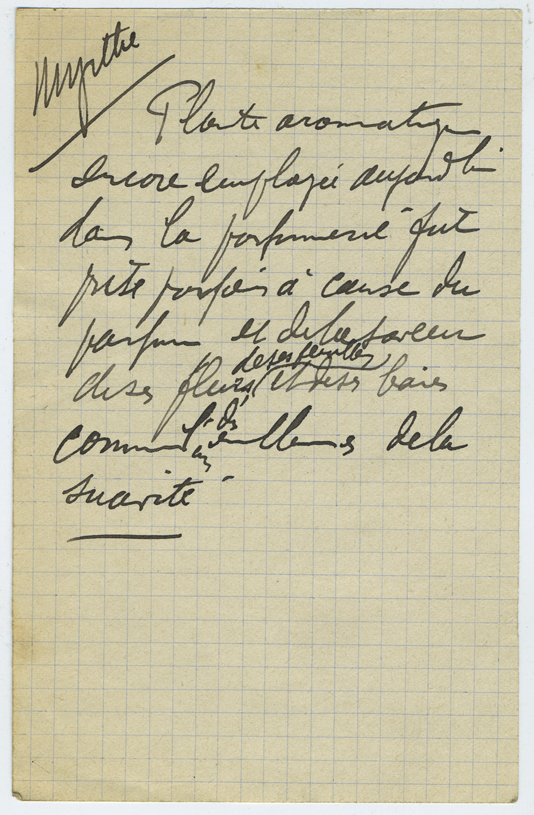 Myrthe
Plante aromatique
encore employée aujourd'hui
dans la parfumerie fut
prise parfois à cause du
parfum et de la saveur
de ses feuilles
de ses fleurs et de ses baies
comme l'un des emblemes de la
suavité